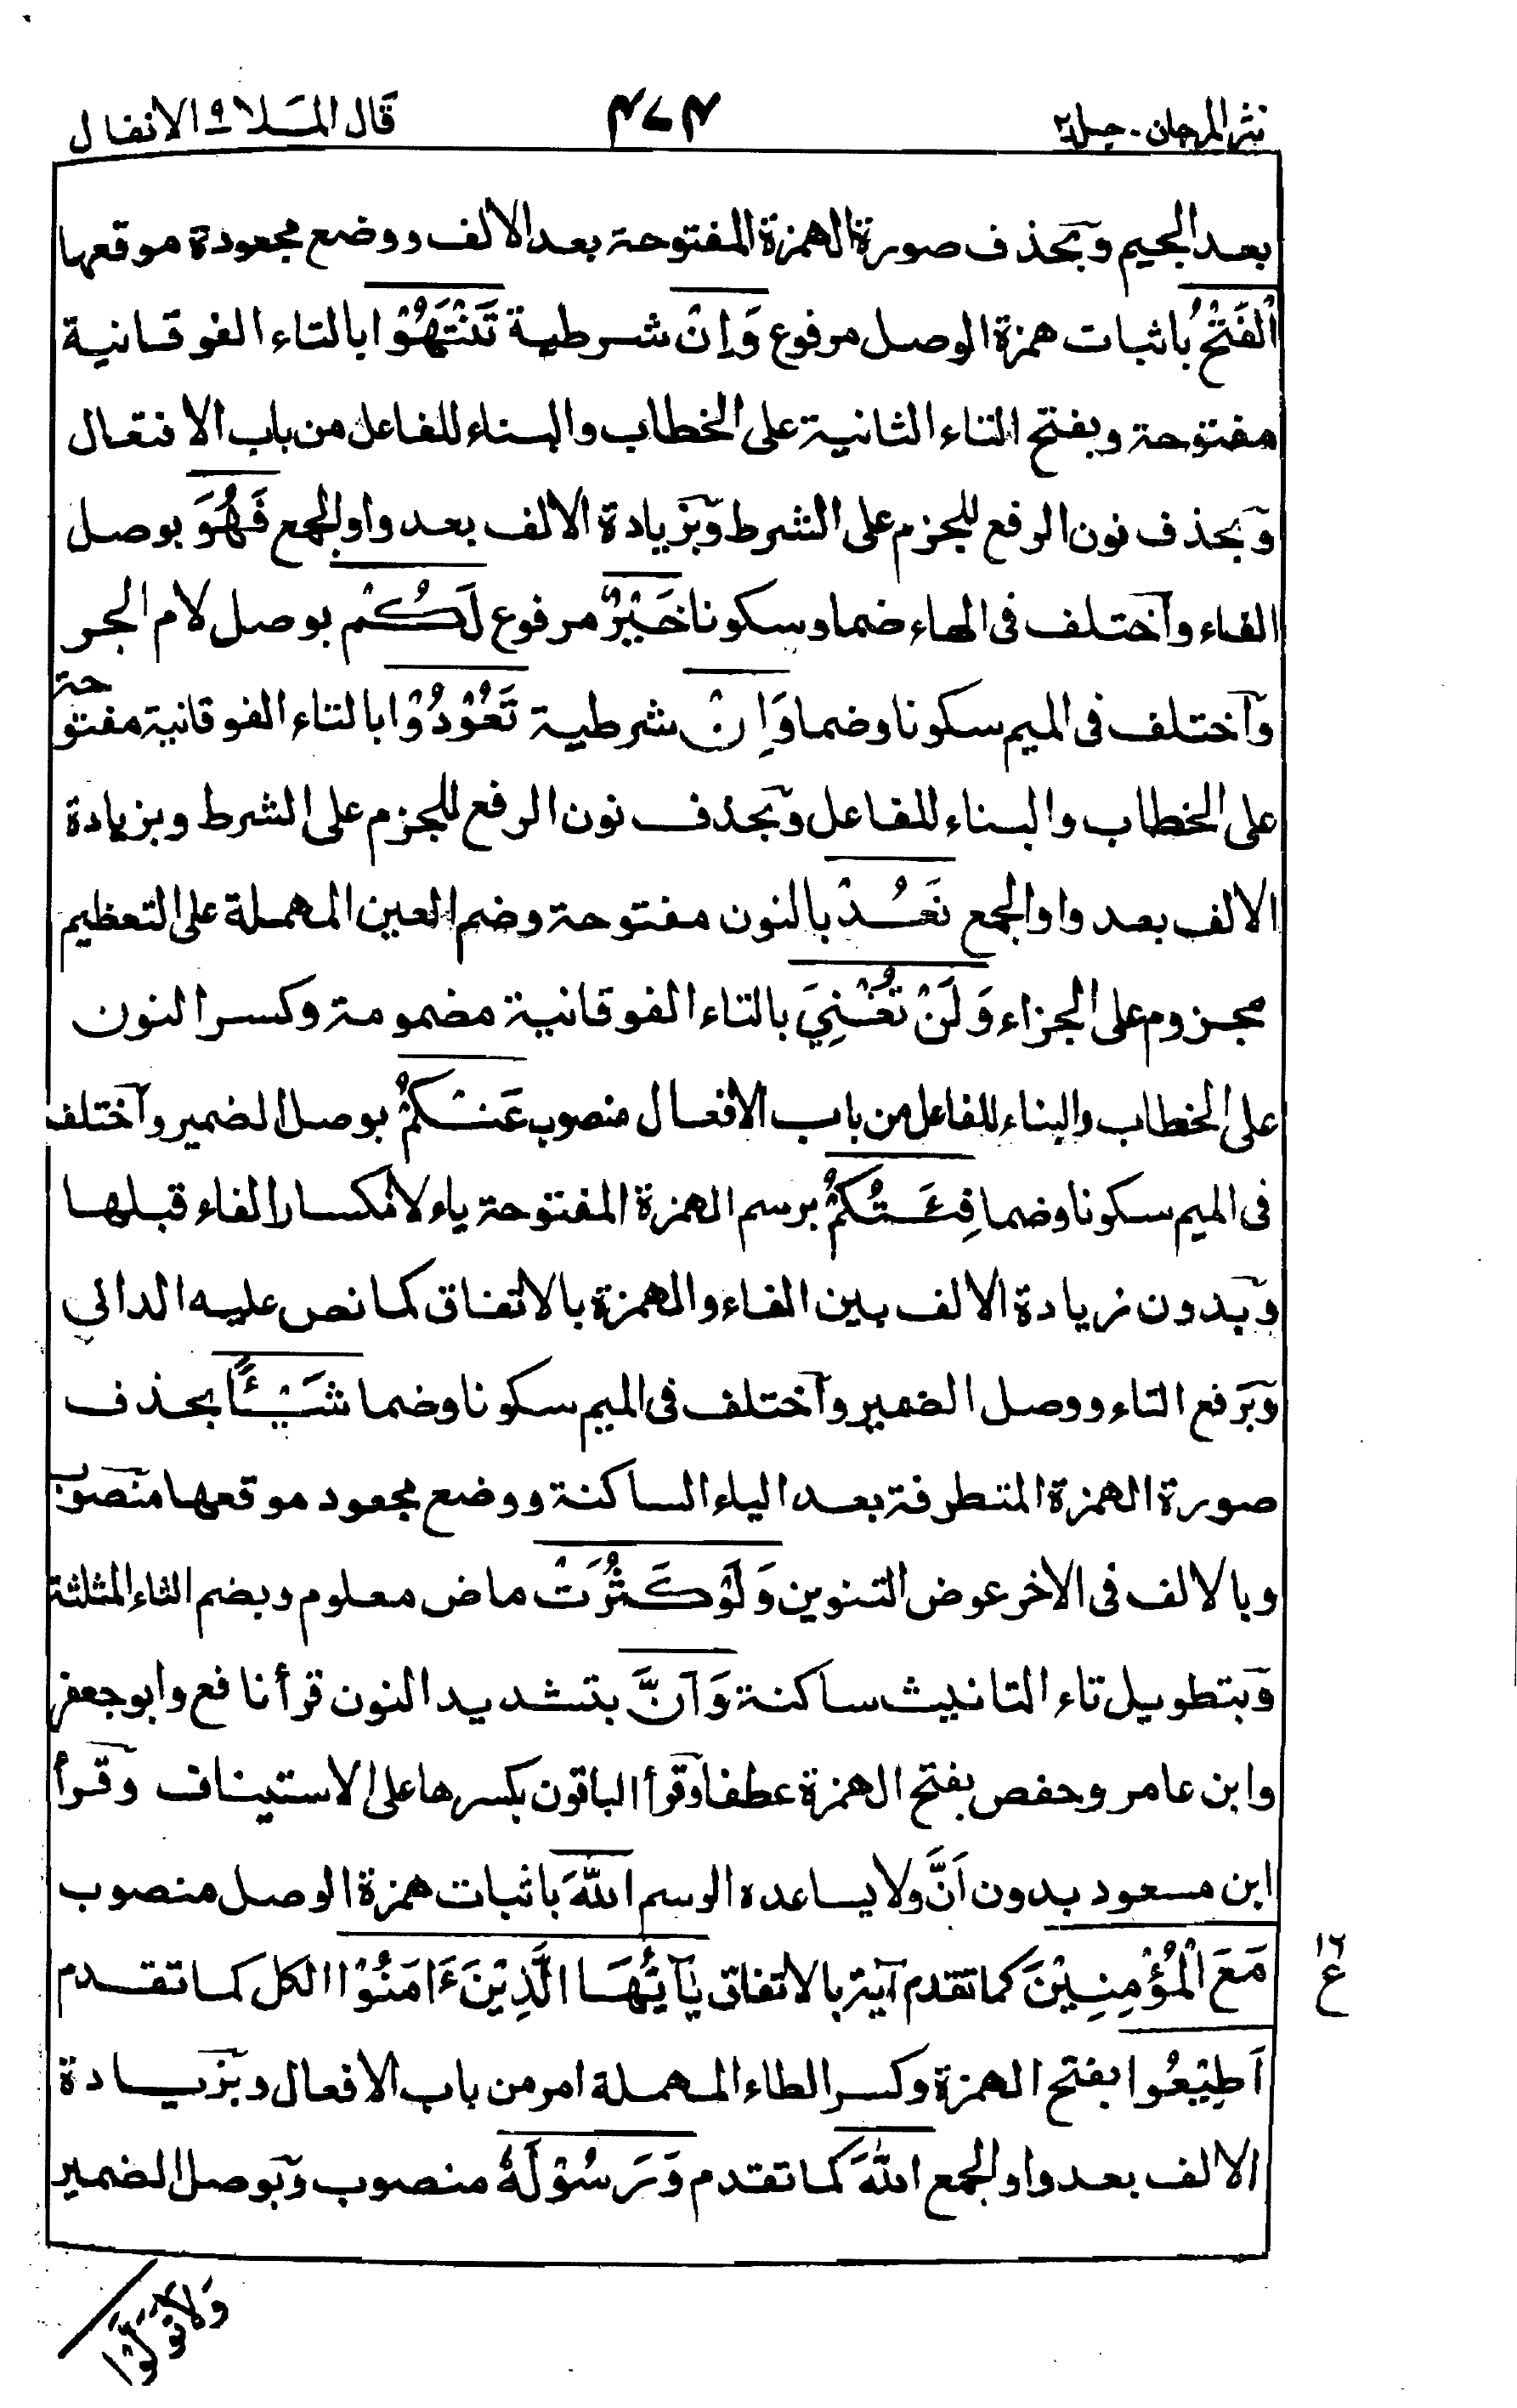 نثر المرجان - جلد٢
٤٧٤
قال الملا ٩ الانفال
بعد الجيم وبحذف صورة الهمزة المفتوحة بعد الالف ووضع مجعودة موقعها
اُلْفَتْحُ باثبات همزة الوصل مرفوع وَاِنْ شرطية تَنْتَهُوْا بالتاء الفوقانية
مفتوحة وبفتح التاء الثانية على الخطاب والبناء للفاعل من باب الافتعال
وبحذف نون الرفع للجزم على الشرط وبزيادة الالف بعد واو الجمع فَهُوَ بوصل
الفاء واختلف فى الهاء ضما وسكونا خَيْرٌ مرفوع لَكُمْ بوصل لام الجر
واختلف فى الميم سكونا وضما وَاِنْ شرطية تَعُوْدُوْا بالتاء الفوقانية مفتوحة
على الخطاب والبناء للفاعل وبحذف نون الرفع للجزم على الشرط وبزيادة
الالف بعد واو الجمع نَعُدْ بالنون مفتوحة وضم العين المهملة على التعظيم
مجزوم على الجزاء وَلَنْ تُغْنِيَ بالتاء الفوقانية مضمومة وكسر النون
على الخطاب والبناء للفاعل من باب الافعال منصوب عَنْكُمْ بوصل الضمير واختلف
فى الميم سكونا وضما فِئَتُكُمْ برسم الهمزة المفتوحة ياء لانكسار الفاء قبلها
وبدون زيادة الالف بين الفاء والهمزة بالاتفاق كما نص عليه الدانى
وبرفع التاء ووصل الضمير واختلف فى الميم سكونا وضما شَيْـًٔا بحذف
صورة الهمزة المتطرفة بعد الياء الساكنة ووضع مجعود موقعها منصوب
وبالالف فى الاخر عوض التنوين وَلَوْ كَثُرَتْ ماض معلوم وبضم الثاء المثلثة
وبتطويل تاء التانيث ساكنة وَاَنَّ بتشديد النون قرأ نافع وابو جعفر
وابن عامر وحفص بفتح الهمزة عطفا وقرأ الباقون بكسرها على الاستيناف وقرأ
ابن مسعود بدون اَنَّ ولا يساعده الرسم اللّٰهَ باثبات همزة الوصل منصوب
مَعَ اْلمُؤْمِنِيْنَ كما تقدم آية بالاتفاق يٰٓاَيُّهَا الَّذِيْنَ ءَامَنُوْا الكل كما تقدم
١٦
ع
اَطِيْعُوا بفتح الهمزة وكسر الطاء المهملة امر من باب الافعال وبزيادة
الالف بعد واو الجمع اللّٰهَ كما تقدم وَرَسُوْلَهٗ منصوب وبوصل الضمير
وَلَا تَوَلَّوْا